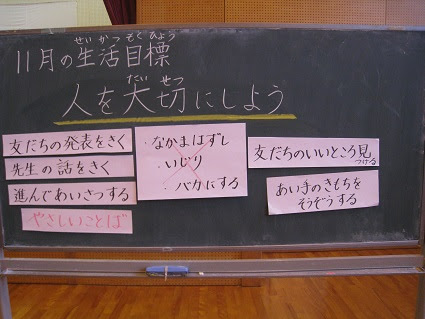 せいかつもくひょう
11月の生活目標
たいせつ
人を大切にしよう
友だちの発表をきく
先生の話をきく
進んであいさつする
やさしいことば
・なかまはずし
・いじり
・バカにする
友だちのいいところ見つける
あい手のきもちを
そうぞうする